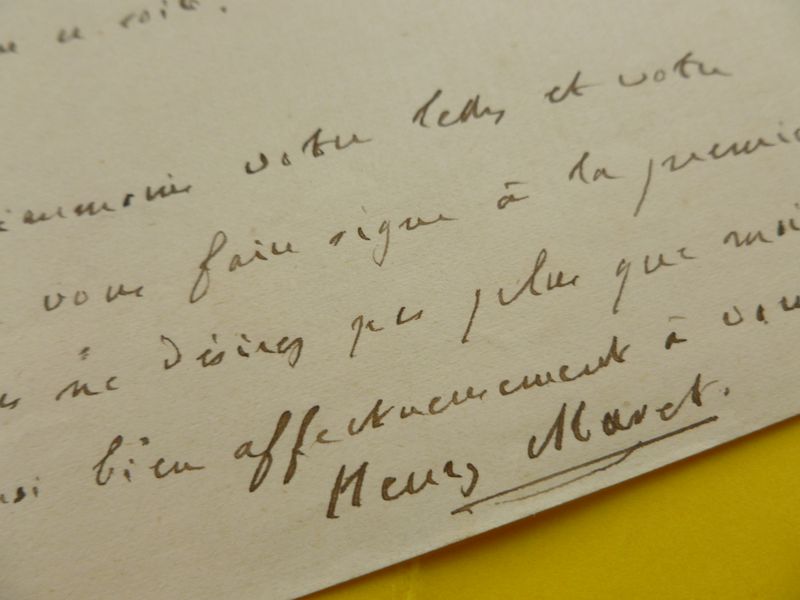 soit.
votre lettre et votre
vous faire signe à la
ne désirez pas plus que moi
bien affectueusement à vous
Henry Maret.